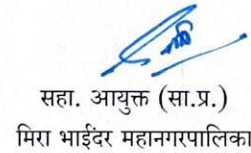 सहा. आयुक्त (सा.प्र.)
मिरा भाईंदर महानगरपालिका